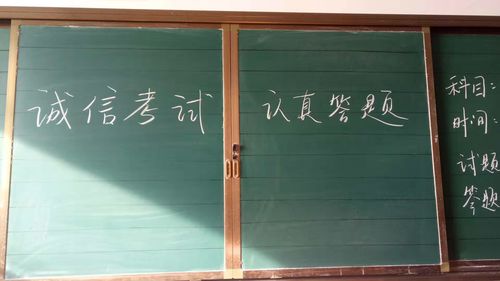 诚信考试
认真答题
科目：
时间：
试题
答题